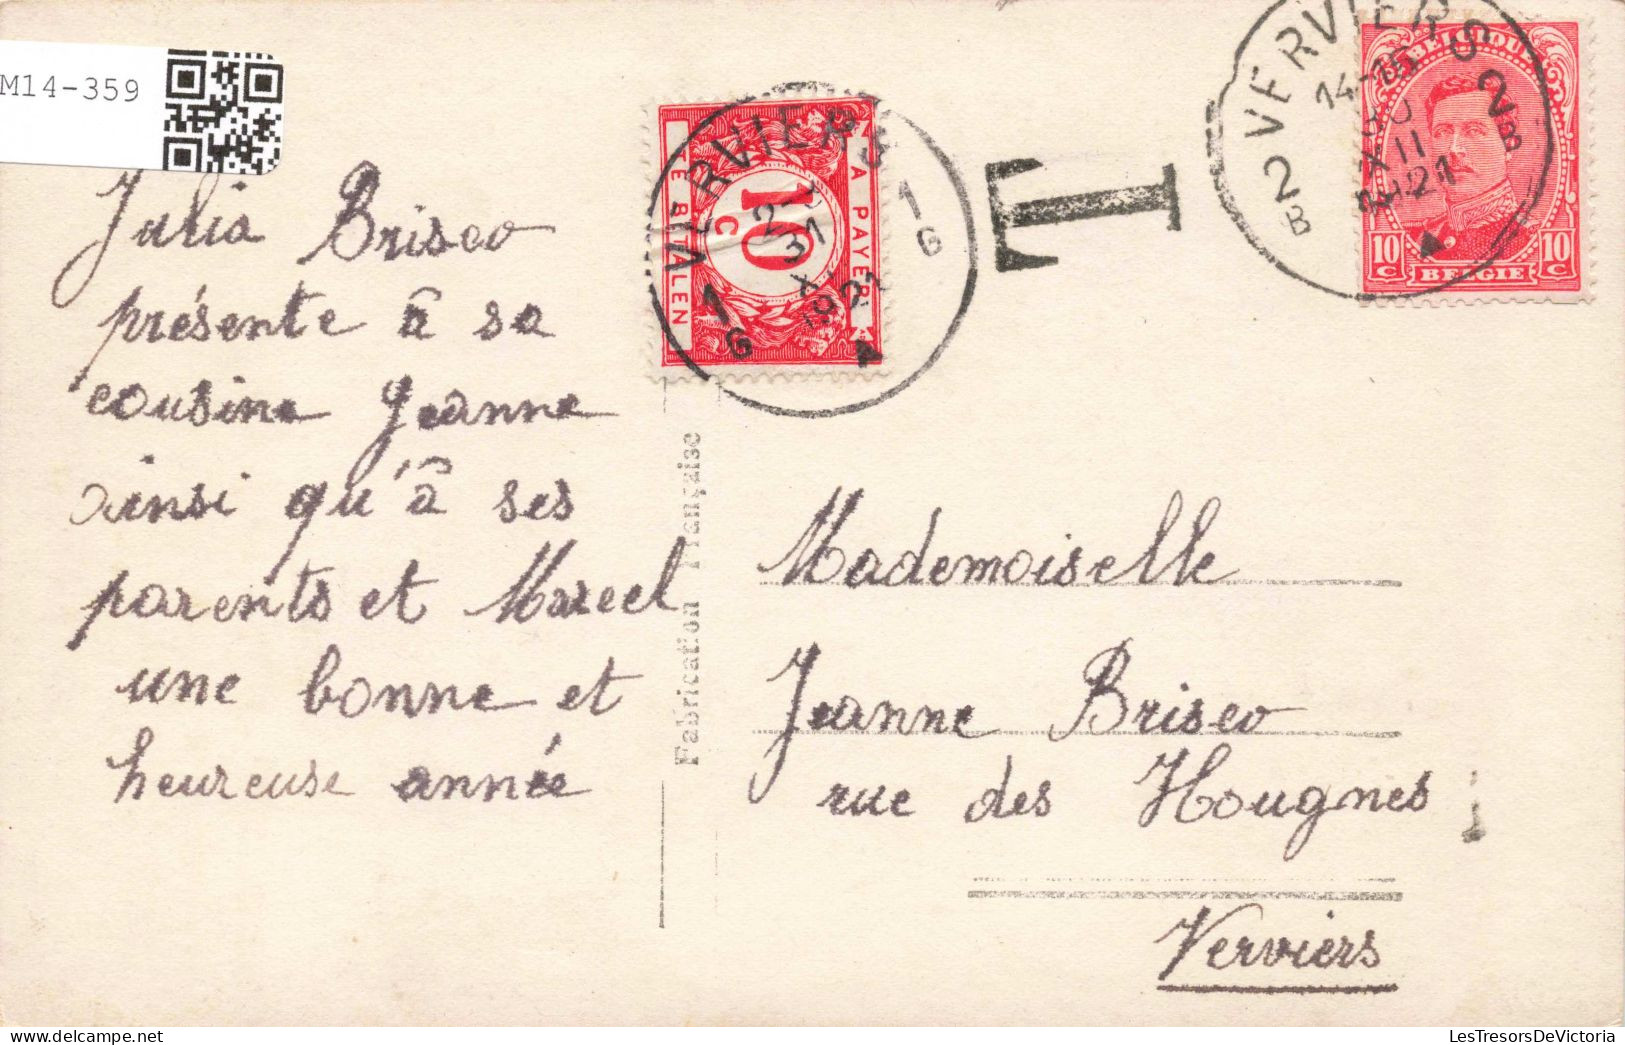 M14-359
Julia Brisco
présente à sa
cousine Jeanne
ainsi qu'à ses
parents et Marcel
une bonne et
heureuse année
Fabrication Française
A PAYER
TE BETALEN
10 C
VERVIERS
1 G
31
1921
1 G
T
VERVIERS 2B
14-15
XII
1921
2B
BELGIQUE
10 C
10 C
BELGIE
Mademoiselle
Jeanne Brisco
rue des Hougnes
Verviers
LesTresorsDeVictoria